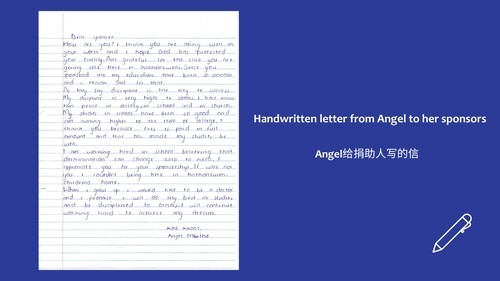 Dear sponsor
How are you? I know you are doing well in
your work and I hope God has protected
your family. Am grateful for the care you are
giving me here in Since you
sponsored me my education has been a success
and I thank God for that.
As they say discipline is the key to success.
My discipline is very high to
peace in society, in school and in church.
My studies in school have been so good and
am aiming higher to the level of college. I
thank you because fees is paid in full
amount and that has made my studies be
well.
I am working hard in school believing that
determination can change zero to hero. I
appreciate you for your sponsorship. If not
you I couldn't being here in
childrens home.
When I grow up I would like to be a doctor
and I promise I will do my best in studies
and be disciplined to I will continue
working hard to achieve my dream.
Angel
Handwritten letter from Angel to her sponsors
Angel给捐助人写的信